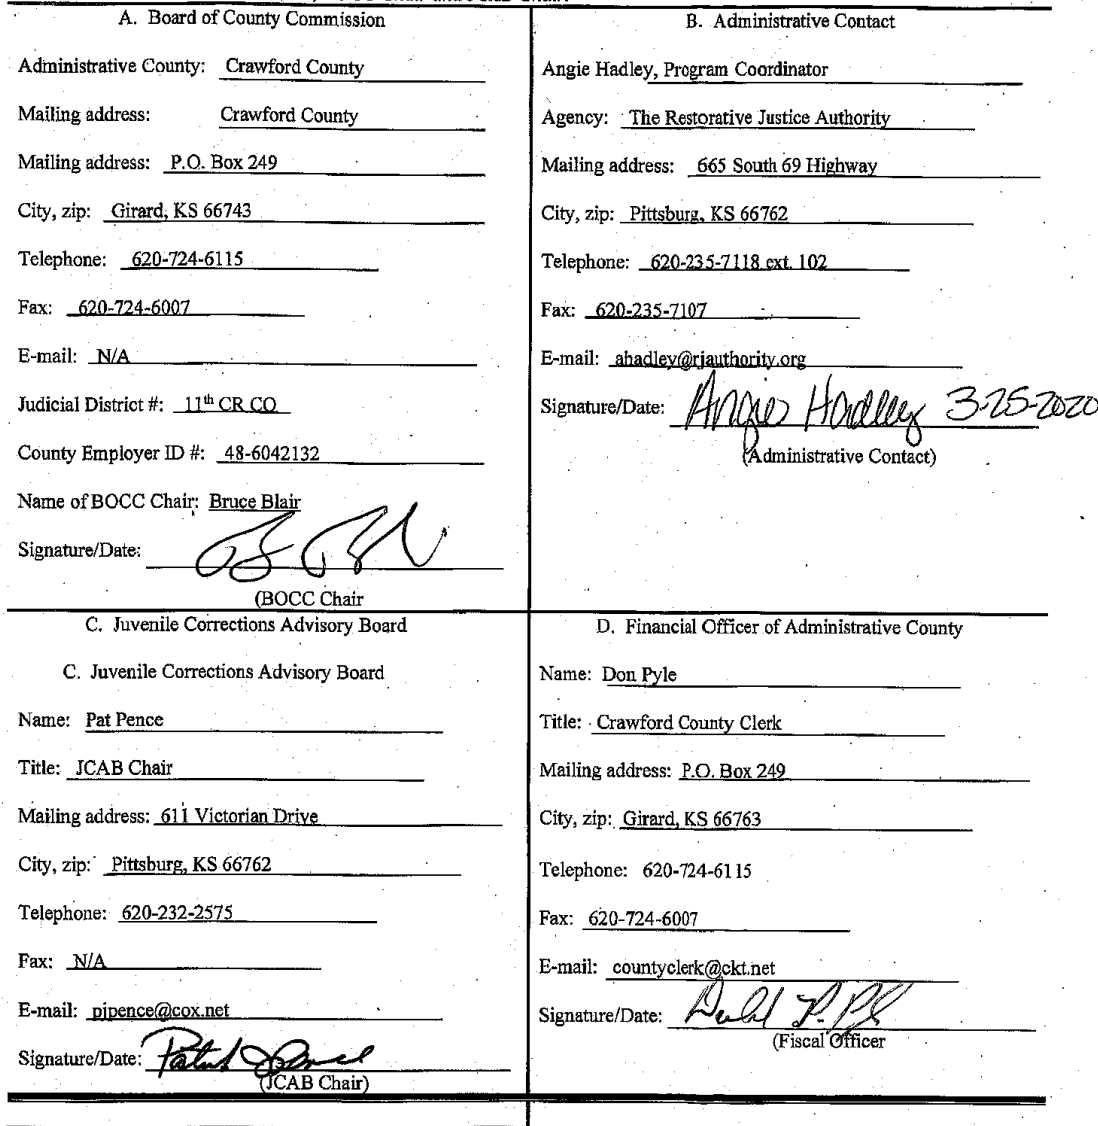 A. Board of County Commission
Administrative County: Crawford County
Mailing address: Crawford County
Mailing address: P.O. Box 249
City, zip: Girard, KS 66743
Telephone: 620-724-6115
Fax: 620-724-6007
E-mail: N/A
Judicial District #: 11th CR CO
County Employer ID #: 48-6042132
Name of BOCC Chair: Bruce Blair
Signature/Date:
(BOCC Chair
B. Administrative Contact
Angie Hadley, Program Coordinator
Agency: The Restorative Justice Authority
Mailing address: 665 South 69 Highway
City, zip: Pittsburg, KS 66762
Telephone: 620-235-7118 ext. 102
Fax: 620-235-7107
E-mail: ahadley@rjauthority.org
Signature/Date: Angie Hadley 3-25-2020
(Administrative Contact)
C. Juvenile Corrections Advisory Board
C. Juvenile Corrections Advisory Board
Name: Pat Pence
Title: JCAB Chair
Mailing address: 611 Victorian Drive
City, zip: Pittsburg, KS 66762
Telephone: 620-232-2575
Fax: N/A
E-mail: pjpence@cox.net
Signature/Date:
(JCAB Chair)
D. Financial Officer of Administrative County
Name: Don Pyle
Title: Crawford County Clerk
Mailing address: P.O. Box 249
City, zip: Girard, KS 66763
Telephone: 620-724-6115
Fax: 620-724-6007
E-mail: countyclerk@ckt.net
Signature/Date:
(Fiscal Officer